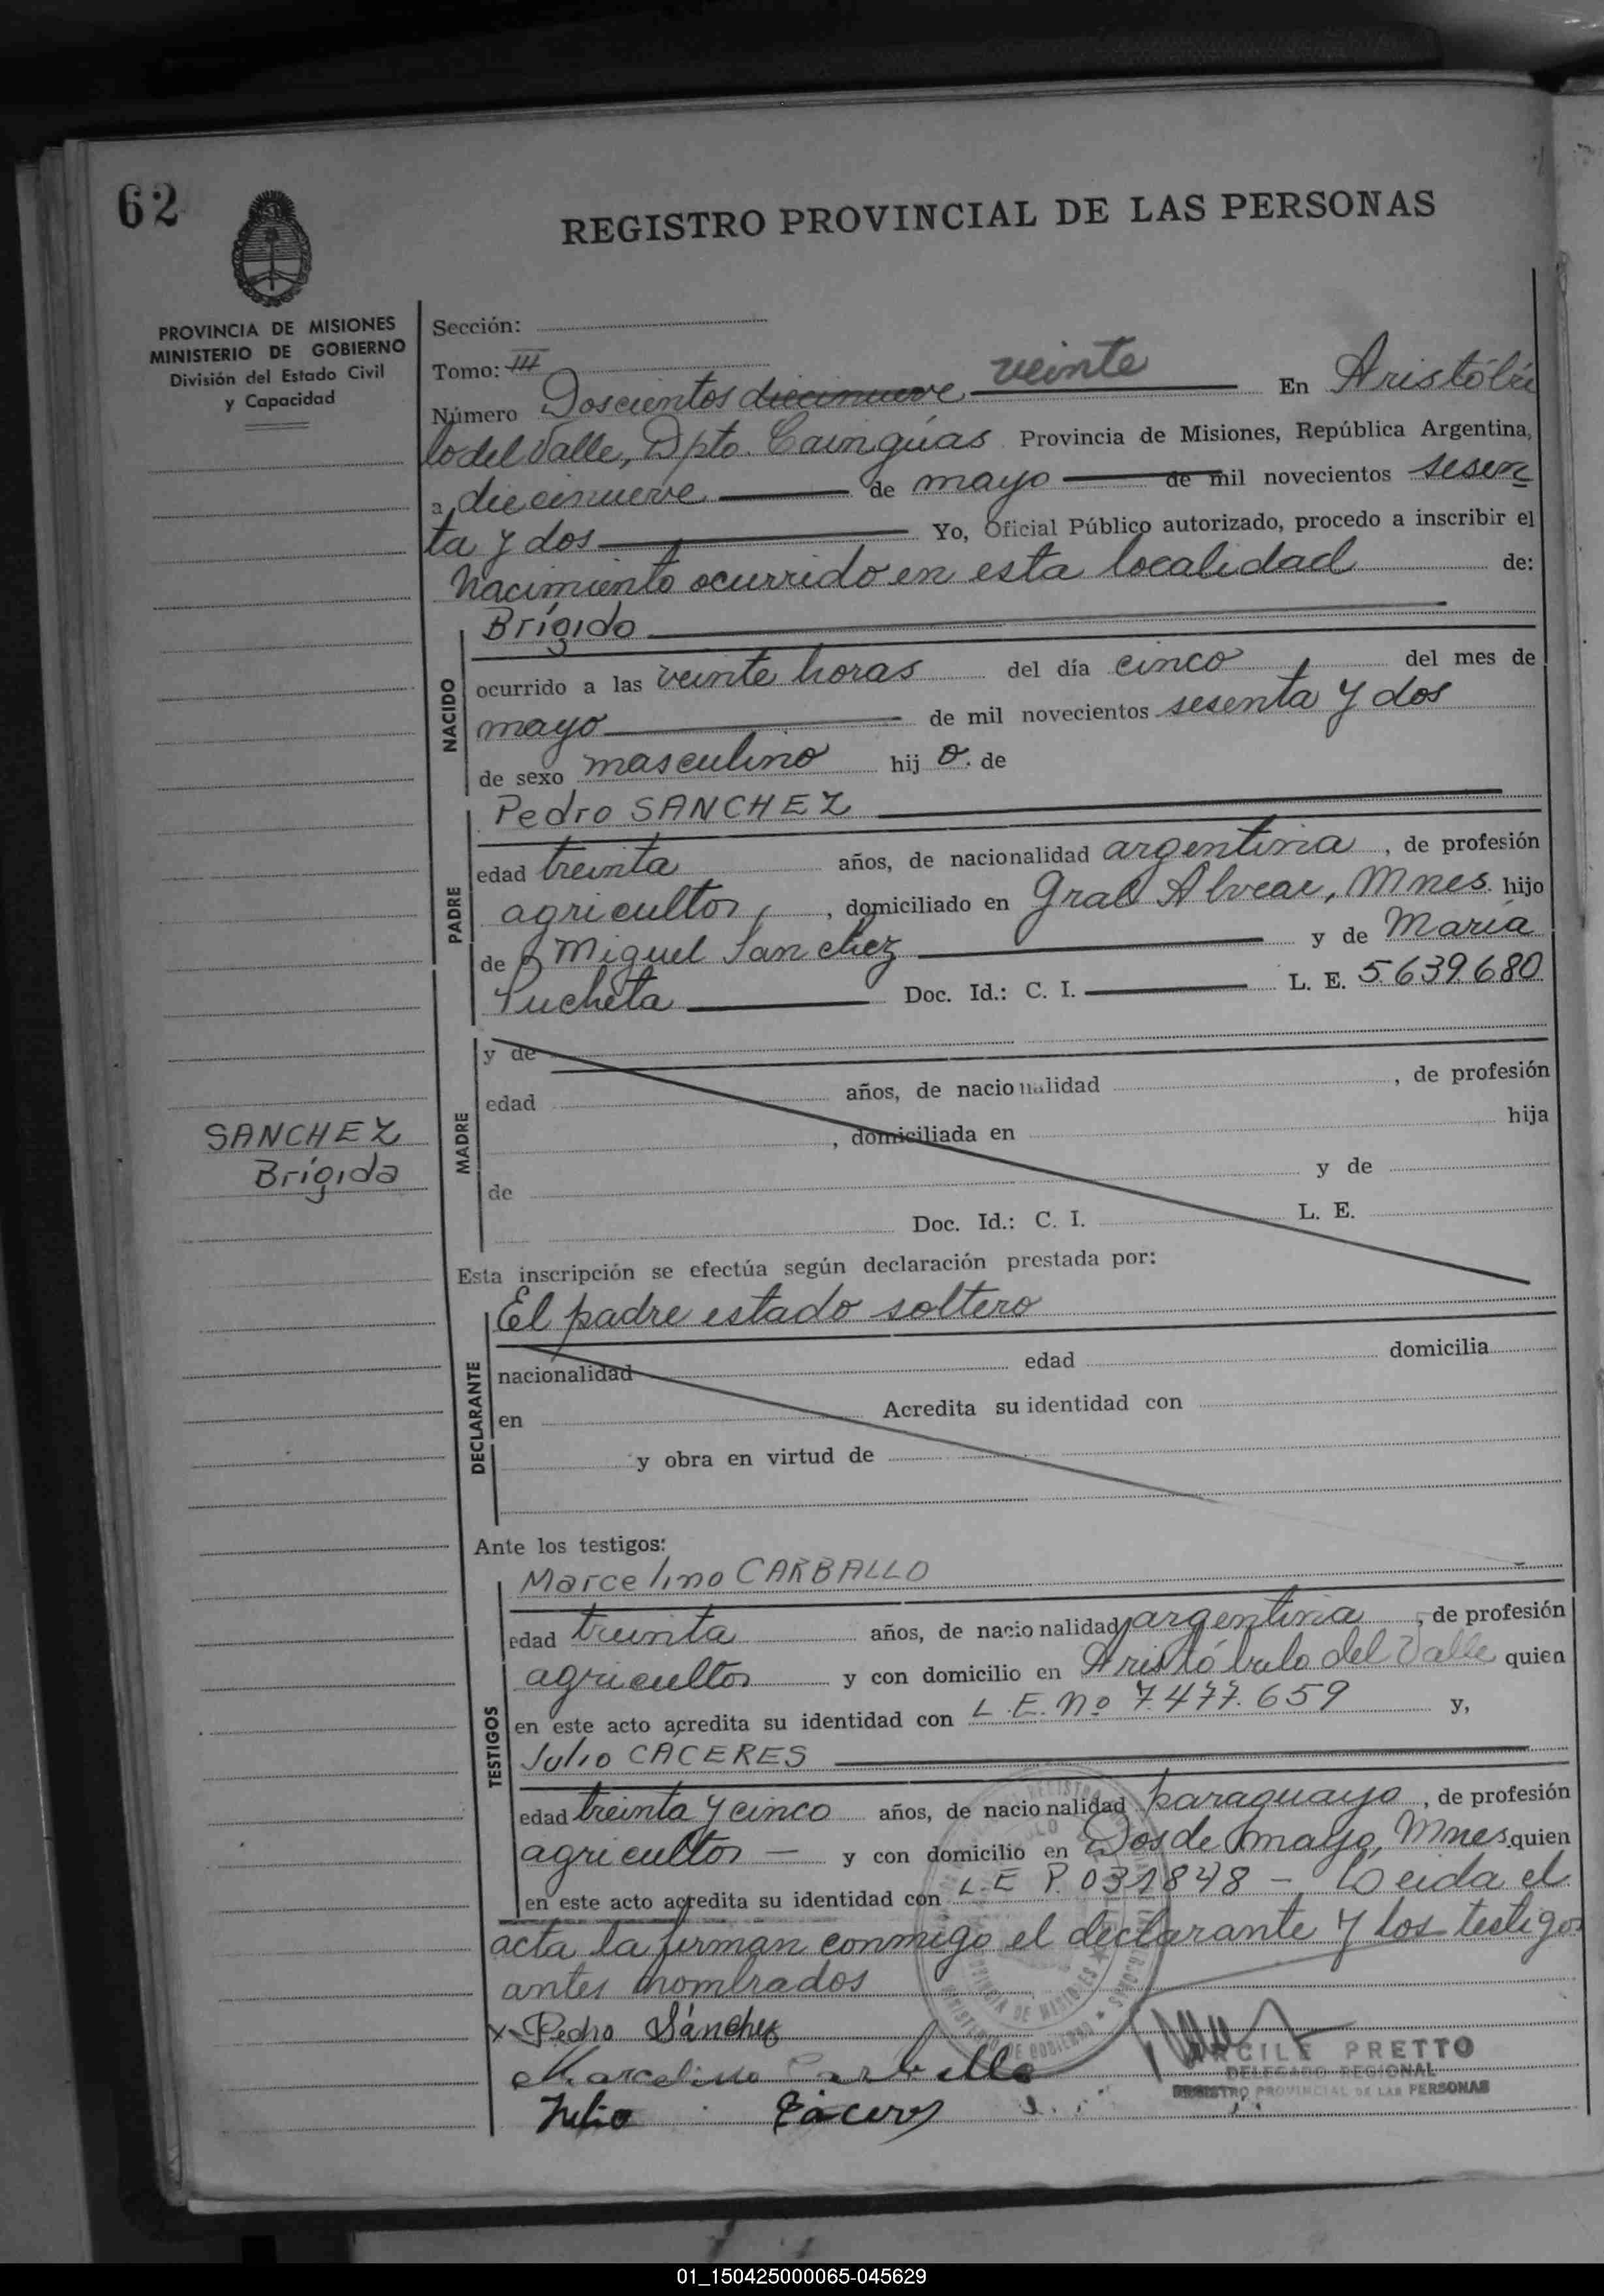 62
REGISTRO PROVINCIAL DE LAS PERSONAS
PROVINCIA DE MISIONES
MINISTERIO DE GOBIERNO
División del Estado Civil
y Capacidad
Sección:
Tomo: III
Número Doscientos diecinueve veinte En Aristóbu
lo del Valle, Dpto. Cainguas Provincia de Misiones, República Argentina,
a diecinueve de mayo de mil novecientos sesen
ta y dos Yo, Oficial Público autorizado, procedo a inscribir el
Nacimiento ocurrido en esta localidad de:
NACIDO
Brígido
ocurrido a las veinte horas del día cinco del mes de
mayo de mil novecientos sesenta y dos
de sexo masculino hij o. de
PADRE
Pedro SANCHEZ
edad treinta años, de nacionalidad argentina, de profesión
agricultor, domiciliado en Gral Alvear, Mnes. hijo
de Miguel Sanchez y de María
Pucheta Doc. Id.: C. I. L. E. 5.639.680
MADRE
y de
edad años, de nacionalidad , de profesión
, domiciliada en hija
de y de
Doc. Id.: C. I. L. E.
SANCHEZ
Brígida
Esta inscripción se efectúa según declaración prestada por:
DECLARANTE
El padre estado soltero
nacionalidad edad domicilia
en Acredita su identidad con
y obra en virtud de
Ante los testigos:
TESTIGOS
Marcelino CARBALLO
edad treinta años, de nacionalidad argentina, de profesión
agricultor y con domicilio en Aristóbulo del Valle quien
en este acto acredita su identidad con L.E. Nº 7.477.659 y,
Julio CACERES
edad treinta y cinco años, de nacionalidad paraguayo, de profesión
agricultor — y con domicilio en Dos de mayo, Mnes. quien
en este acto acredita su identidad con L.E P. 031848 - Leida el
acta la firman conmigo el declarante y los testigos
antes nombrados
x Pedro Sánchez
Marcelino Carballo
Julio Cáceres
ARCILE PRETTO
DELEGADO REGIONAL
REGISTRO PROVINCIAL DE LAS PERSONAS
01_150425000065-045629